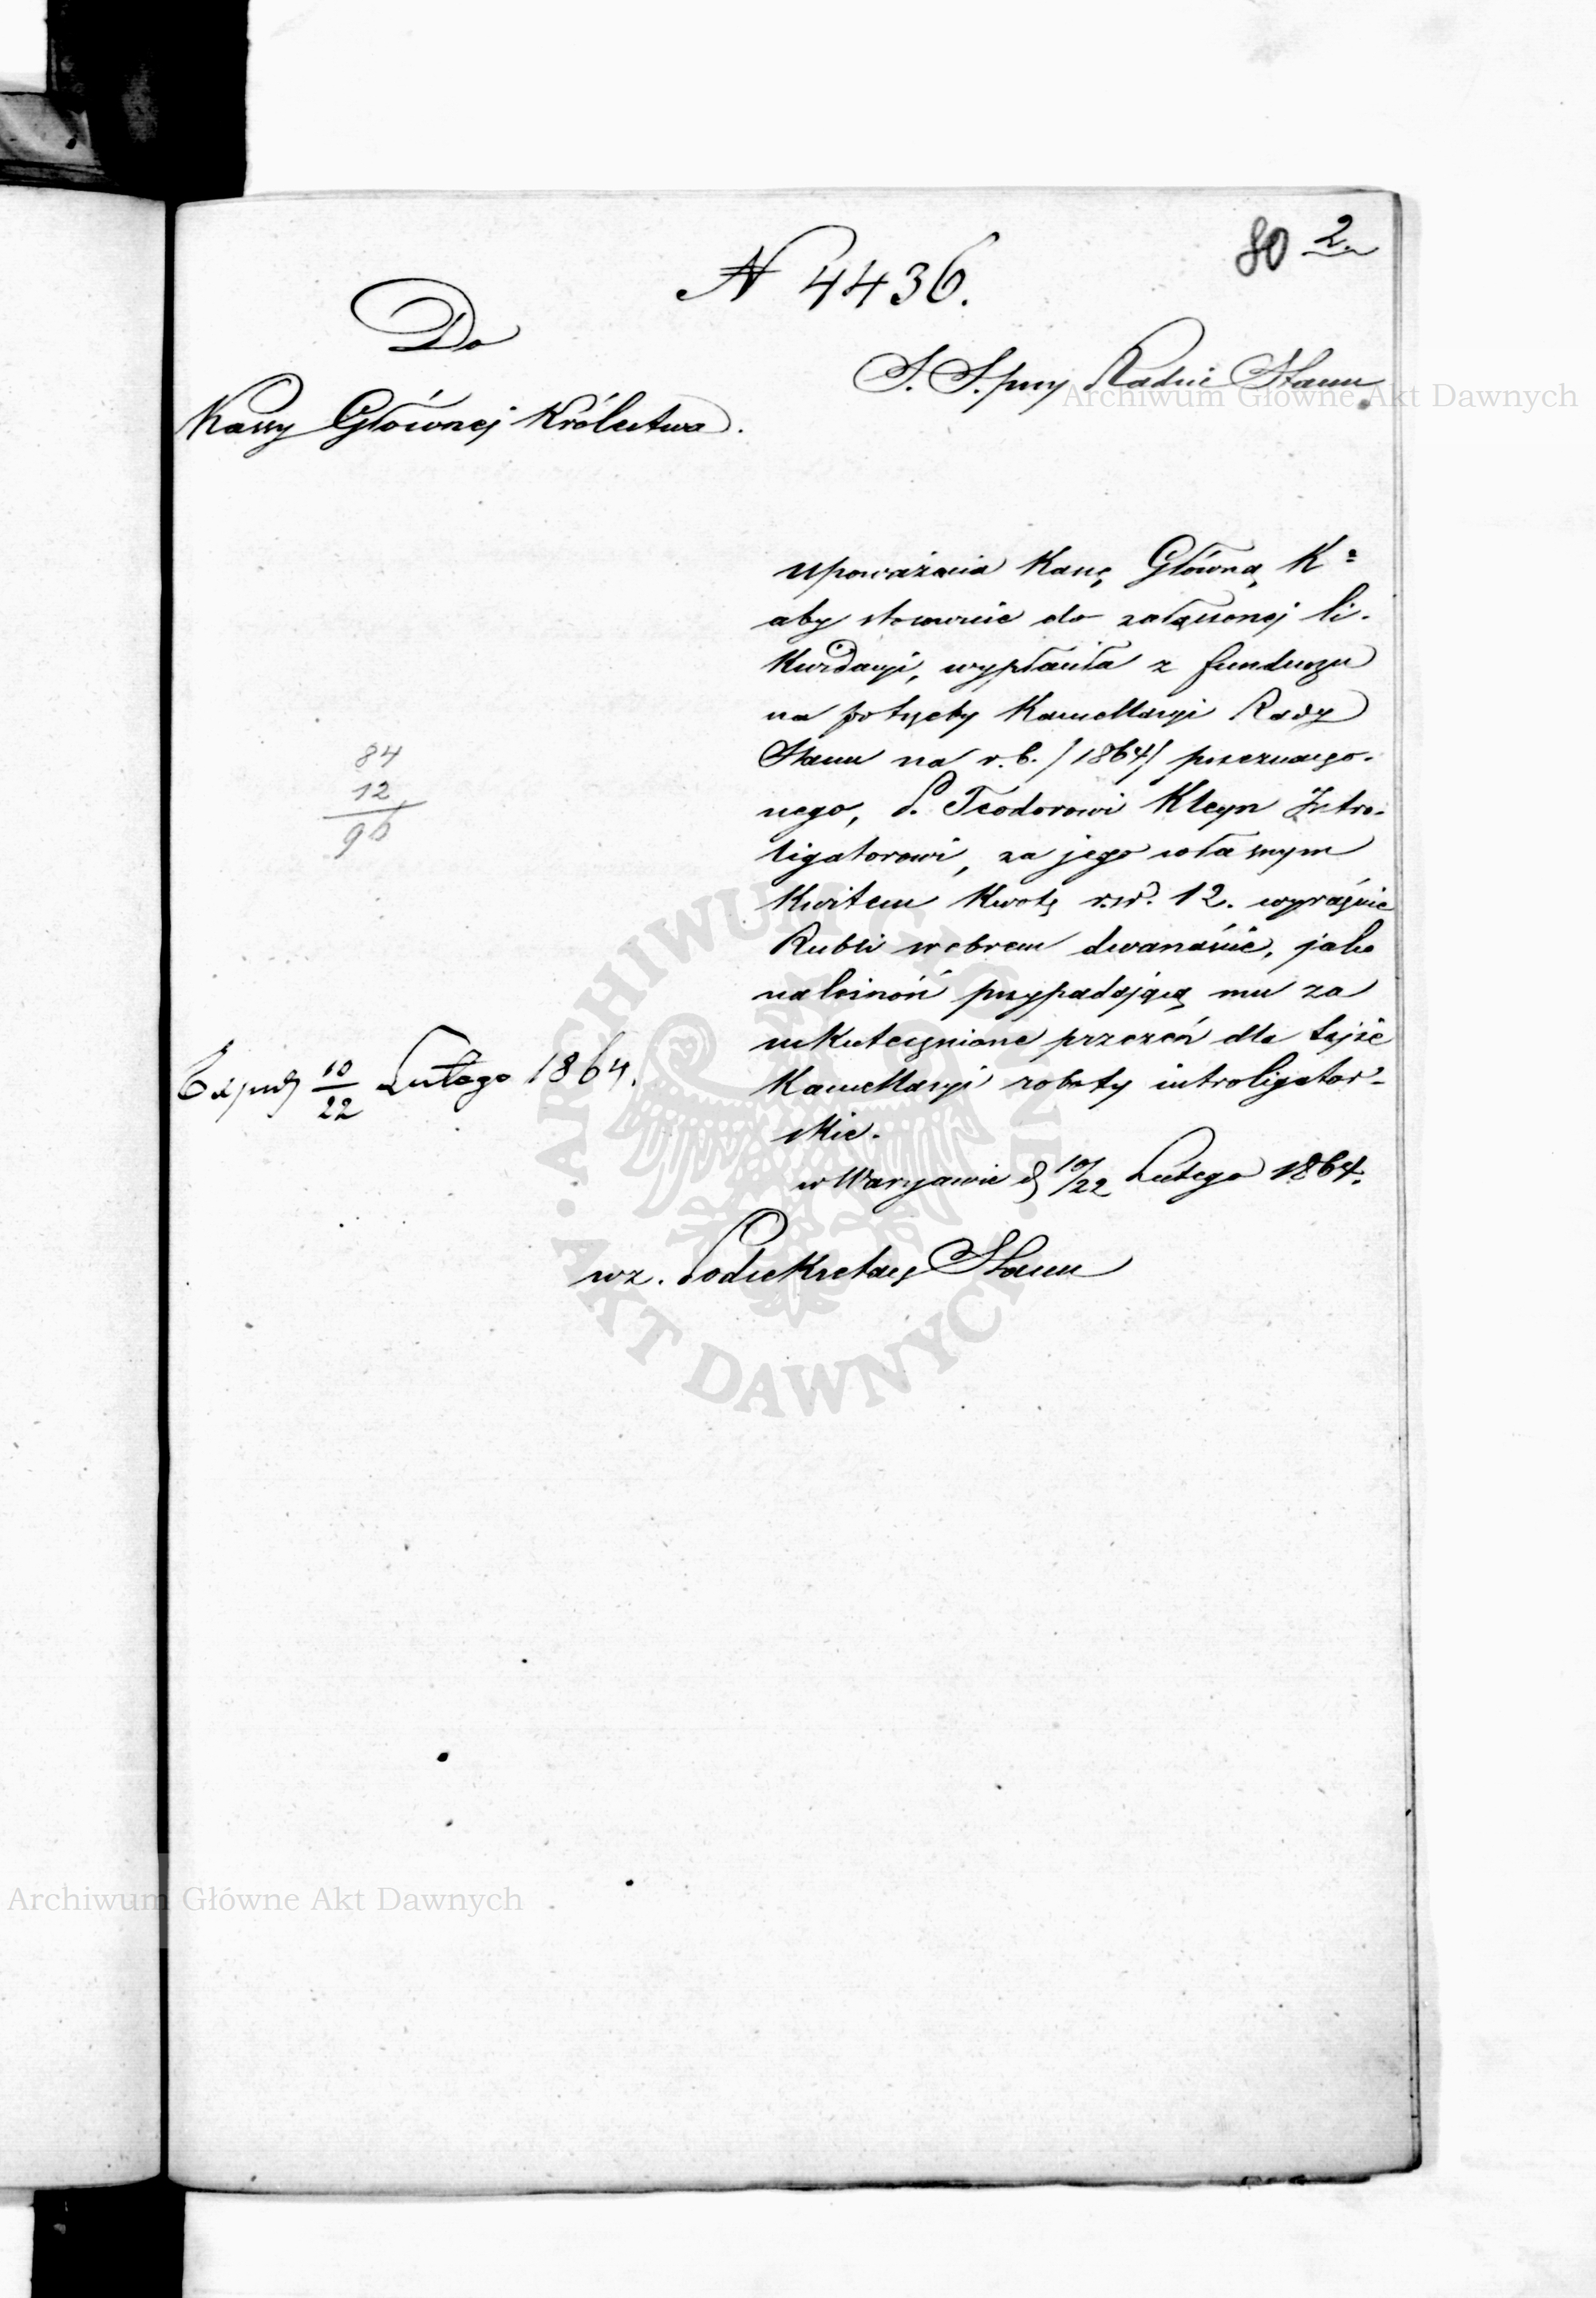 80 2.
N 4436.
Do
Kassy Głównej Królestwa.
S. S. przy Radzie Stanu
Archiwum Główne Akt Dawnych
upoważnia Kassę Główną K
aby stosownie do załączonej li-
kwidacyi, wypłaciła z funduszu
na potrzeby Kancellaryi Rady
Stanu na r. b. /1864/ przeznaczo-
nego, P. Teodorowi Kleyn Intro-
ligatorowi, za jego własnym
kwitem kwotę r.sr. 12. wyraźnie
Rubli srebrem dwanaście, jako
należność przypadającą mu za
uskutecznione przezeń dla tejże
Kancellaryi roboty introligator-
skie.
84
12
96
Exped 10/22 Lutego 1864.
w Warszawie d 10/22 Lutego 1864.
wz. Podsekretarz Stanu
ARCHIWUM GŁÓWNE AKT DAWNYCH
Archiwum Główne Akt Dawnych